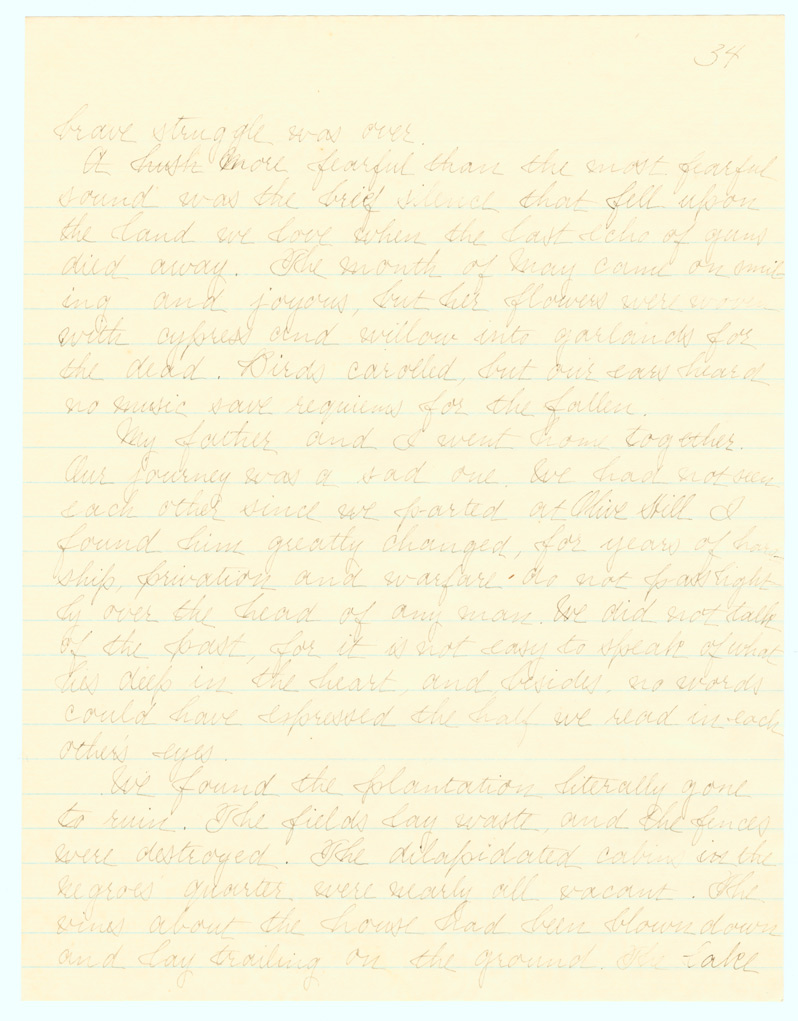 34
brave struggle was over.
A hush more fearful than the most fearful
sound was the brief silence that fell upon
the land we love when the last echo of guns
died away. The month of May came on smil
ing and joyous, but her flowers were woven
with cypress and willow into garlands for
the dead. Birds carolled, but our ears heard
no music save requiems for the fallen.
My father and I went home together.
Our journey was a sad one. We had not seen
each other since we parted at Olive Hill I
found him greatly changed, for years of hard
ship, privation and warfare do not pass light
ly over the head of any man. We did not talk
of the past, for it is not easy to speak of what
lies deep in the heart, and besides, no words
could have expressed the half we read in each
other's eyes.
We found the plantation literally gone
to ruin. The fields lay waste, and the fences
were destroyed. The dilapidated cabins in the
negroes' quarter were nearly all vacant. The
vines about the house had been blown down
and lay trailing on the ground. The lake